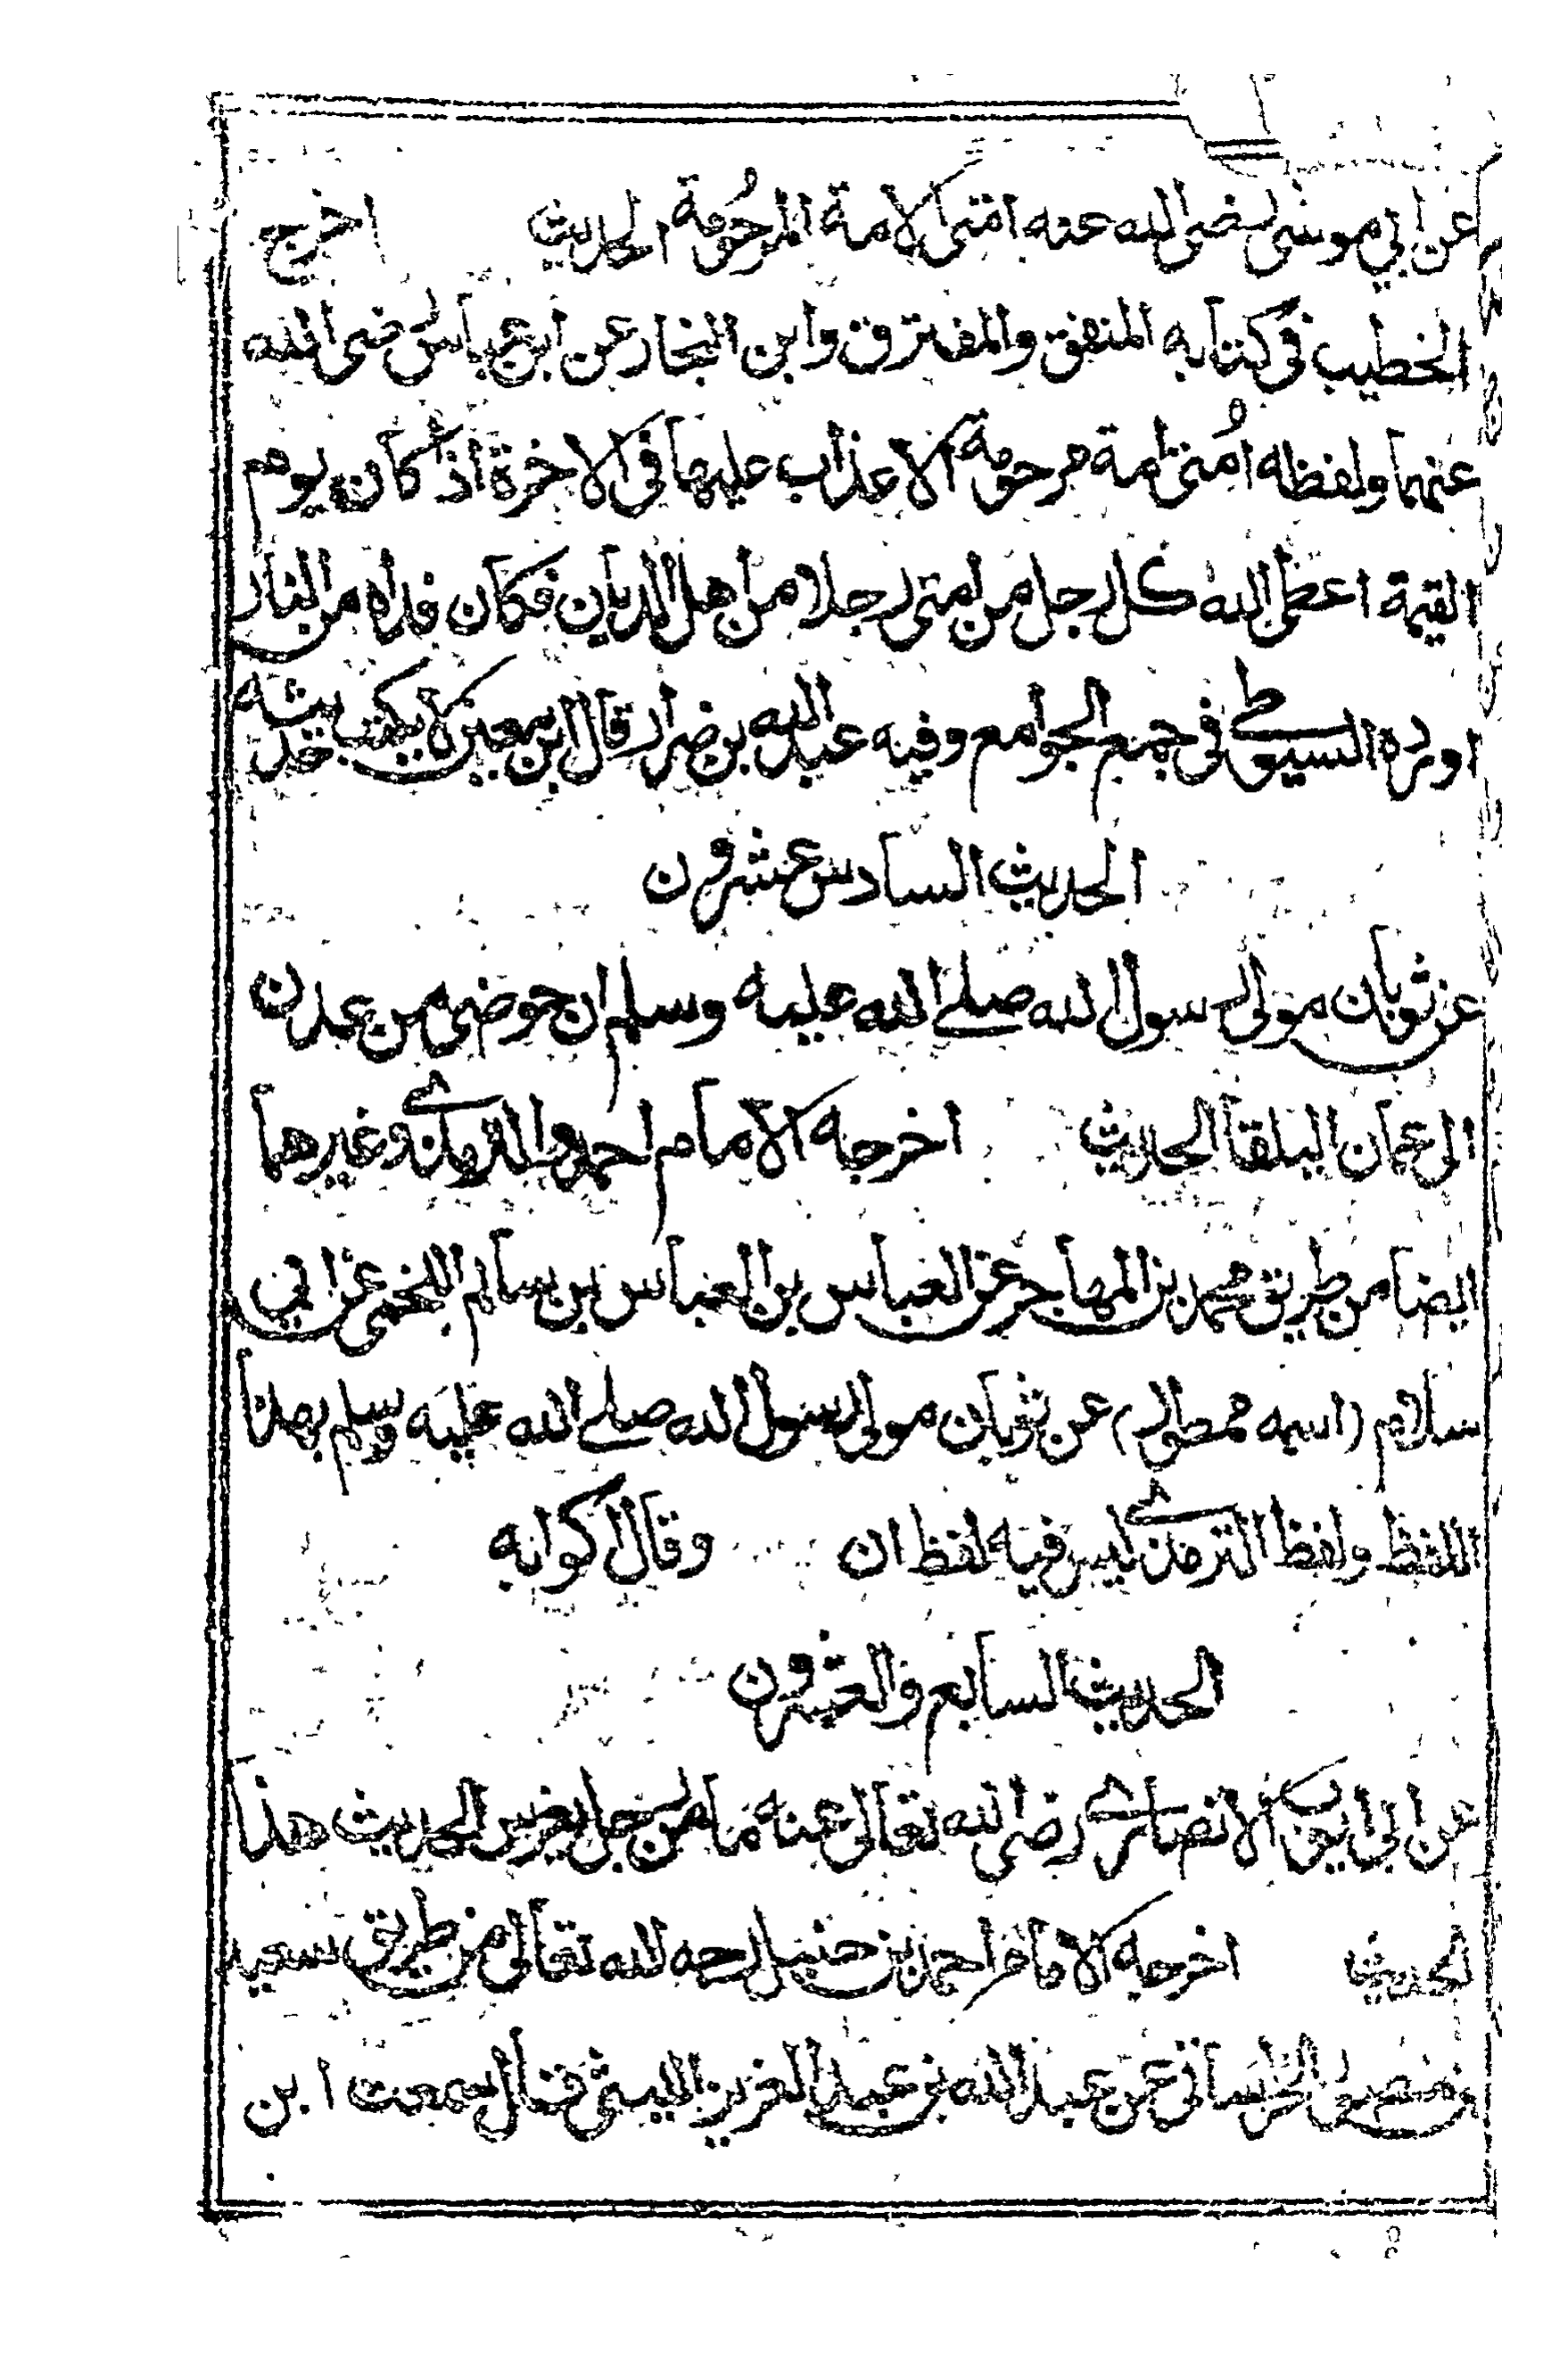 عن ابي موسى رضى الله عنه امتى الامة المرحُومة الحديث اخرج
الخطيب فى كتابه المتفق والمفترق وابن النجار عن ابن عباس رضى الله
عنهما ولفظه اُمتى امة مرحومة لا عذاب عليها فى الاخرة اذا كان يوم
القيمة اعطى الله كل رجل من امتى رجلا من اهل الاديان فكان فداه من النار
اورده السيوطى فى جمع الجوامع وفيه عبد الله بن ضرار قال ابن معين لا يكتب حديثه
الحديث السادس عشرون
عن ثوبان مولى رسول الله صلى الله عليه وسلم ان حوضى من عدن
الى عمان البلقا الحديث اخرجه الامام احمد والترمذى وغيرهما
ايضا من طريق محمد بن المهاجر عن العباس بن العباس بن سالم اللخمى عن ابي
سلام (اسمه ممطور) عن ثوبان مولى رسول الله صلى الله عليه وسلم بهذا
اللفظ ولفظ الترمذى ليس فيه لفظ ان وقال كوابه
الحديث السابع والعشرون
عن ابى ايوب الانصارى رضى الله تعالى عنه ما من رجل يغرس الحديث هذا
الحديث اخرجه الامام احمد بن حنبل رحمه الله تعالى من طريق سعيد
بن منصور الخراسانى عن عبد الله بن عبد العزيز الليثى قال سمعت ابن